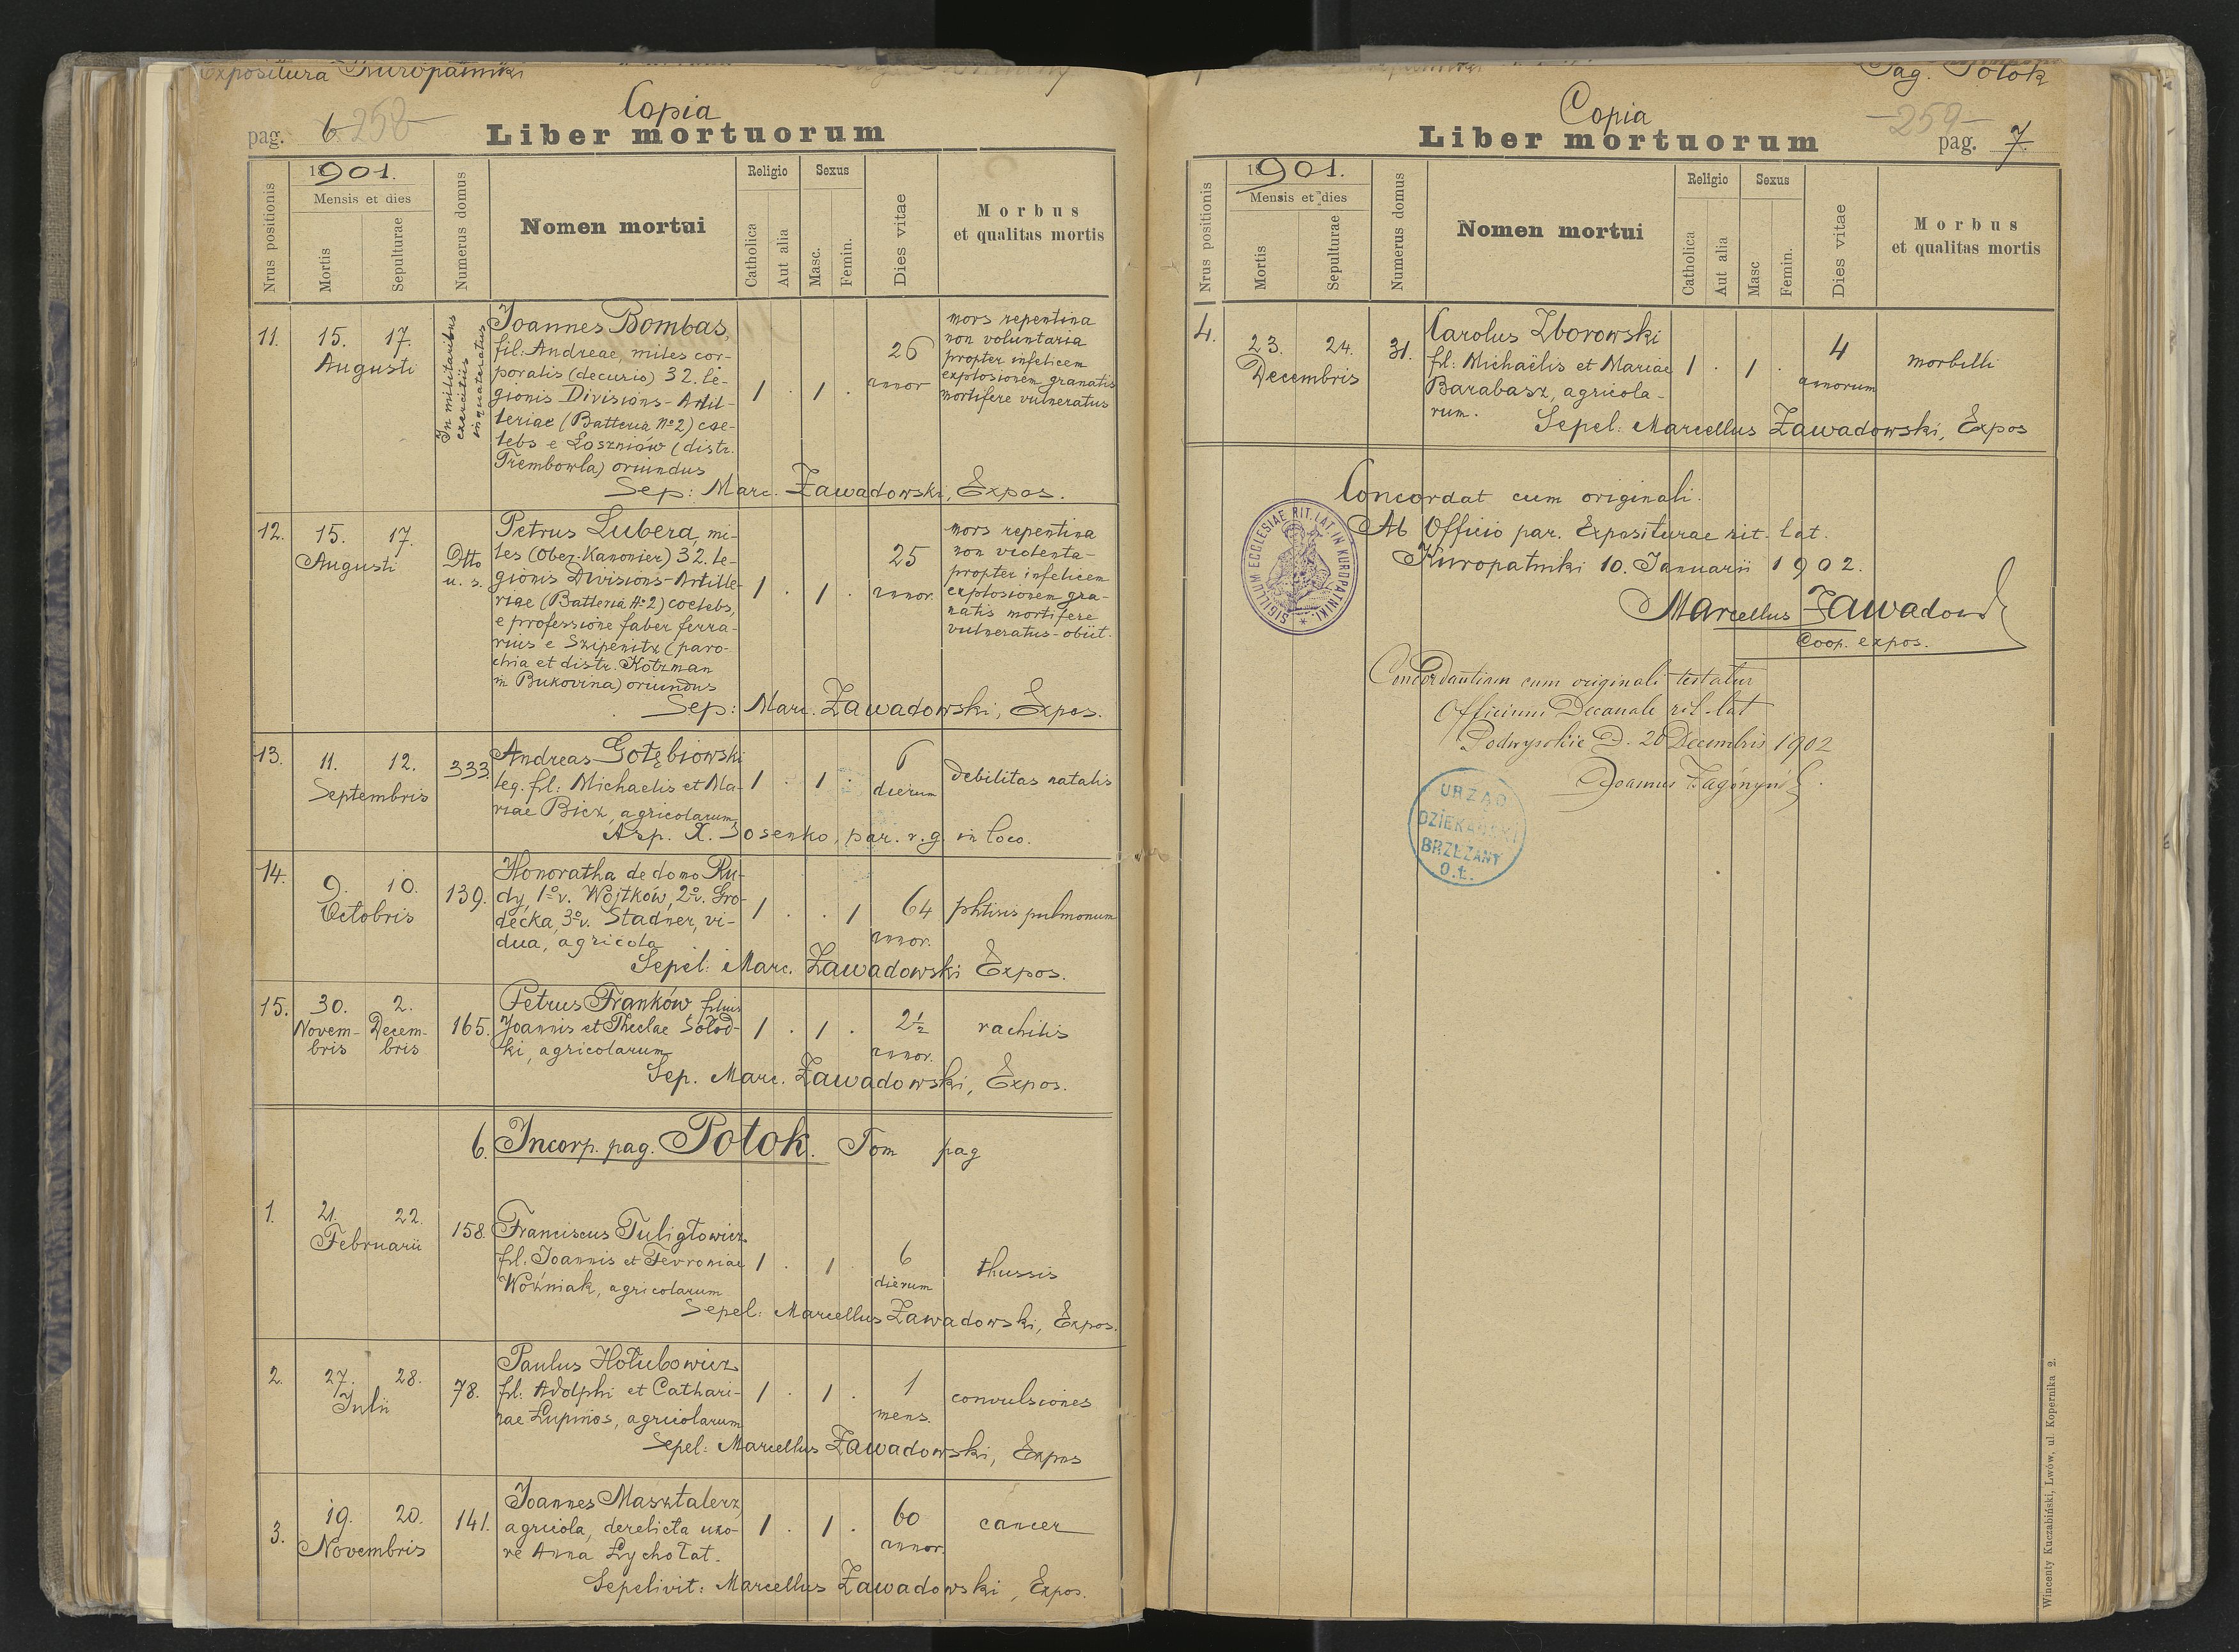 Expositura Kuropatniki
Copia
pag. 6. 258
Liber mortuorum
1901.
Mensis et dies
Nrus positionis
Mortis
Sepulturae
Numerus domus
Nomen mortui
Religio
Catholica
Aut alia
Sexus
Masc.
Femin.
Dies vitae
Morbus
et qualitas mortis
11.
15. 17.
Augusti
In militaribus
exercitiis
inquateratus
Joannes Bombas,
fil: Andreae, miles cor-
poralis (decurio) 32. le-
gionis Divisions-Artil-
leriae (Batteria No 2) coe-
lebs e Łoszniów (distr.
Trembowla) oriundus
1 . 1 .
26
annor
mors repentina
non voluntaria
propter infelicem
explosionem granatis
mortifere vulneratus
Sep: Marc. Zawadowski, Expos.
12.
15. 17.
Augusti
Otto
u. s.
Petrus Lubera, mi-
les (Ober-Kanonier) 32. le-
gionis Divisions-Artille-
riae (Batteria No 2) coelebs,
e professione faber ferra-
rius e Szipenitz (paro-
chia et distr. Kotzman
in Bukovina) oriundus
1 . 1 .
25
annor.
mors repentina
non violenta-
propter infelicem
explosionem gra-
natis mortifere
vulneratus-obiit.
Sep: Marc. Zawadowski, Expos.
13.
11. 12.
Septembris
333.
Andreas Gołębiowski
leg. fil: Michaelis et Ma-
riae Bicz, agricolarum
1 . 1 .
6
dierum
debilitas natalis
Asp. X. Sosenko, par. r. g. in loco.
14.
9. 10.
Octobris
139.
Honoratha de domo Ru-
dy, 1o v. Wojtków, 2o v. Gro-
decka, 3o v. Stadner, vi-
dua, agricola
1 . . 1
64
annor.
phtisis pulmonum
Sepel: Marc. Zawadowski Expos.
15.
30. 2.
Novem- Decem-
bris bris
165.
Petrus Franków, filius
Joannis et Theclae Sołod-
ki, agricolarum
1 . 1 .
2½
annor.
rachitis
Sep. Marc. Zawadowski, Expos.
6. Incorp. pag. Potok. Tom pag
1.
21. 22.
Februarii
158.
Franciscus Tuligłowicz
fil. Joannis et Fevroniae
Woźniak, agricolarum
1 . 1 .
6
dierum
thussis
Sepel: Marcellus Zawadowski, Expos.
2.
27. 28.
Julii
78.
Paulus Hołubowicz
fil: Adolphi et Cathari-
nae Łupinos, agricolarum
1 . 1 .
1
mens.
convulsiones
Sepel: Marcellus Zawadowski, Expos
3.
19. 20.
Novembris
141.
Joannes Masztalerz
agricola, derelicta uxo-
re Anna Łychołat.
1 . 1 .
60
annor.
cancer
Sepelivit: Marcellus Zawadowski, Expos.
Pag. Potok
Copia
Liber mortuorum
-259-
pag. 7
1901.
Mensis et dies
Nrus positionis
Mortis
Sepulturae
Numerus domus
Nomen mortui
Religio
Catholica
Aut alia
Sexus
Masc
Femin.
Dies vitae
Morbus
et qualitas mortis
4.
23. 24.
Decembris
31.
Carolus Zborowski
fil: Michaëlis et Mariae
Barabasz, agricola-
rum.
1 . 1 .
4
annorum
morbilli
Sepel: Marcellus Zawadowski, Expos
Concordat cum originali.
Ab Officio par. Expositurae rit. lat.
Kuropatniki 10. Januarii 1902.
Marcellus Zawadowski
Coop. expos.
SIGILLUM ECCLESIAE RIT. LAT. IN KUROPATNIKI.
Concordantiam cum originali testatur
Officium Decanale rit. lat
Podwysokie D. 20 Decembris 1902
URZĄD
DZIEKAŃSKI
BRZEŻANY
O.Ł.
Wincenty Kuczabiński, Lwów, ul. Kopernika 2.